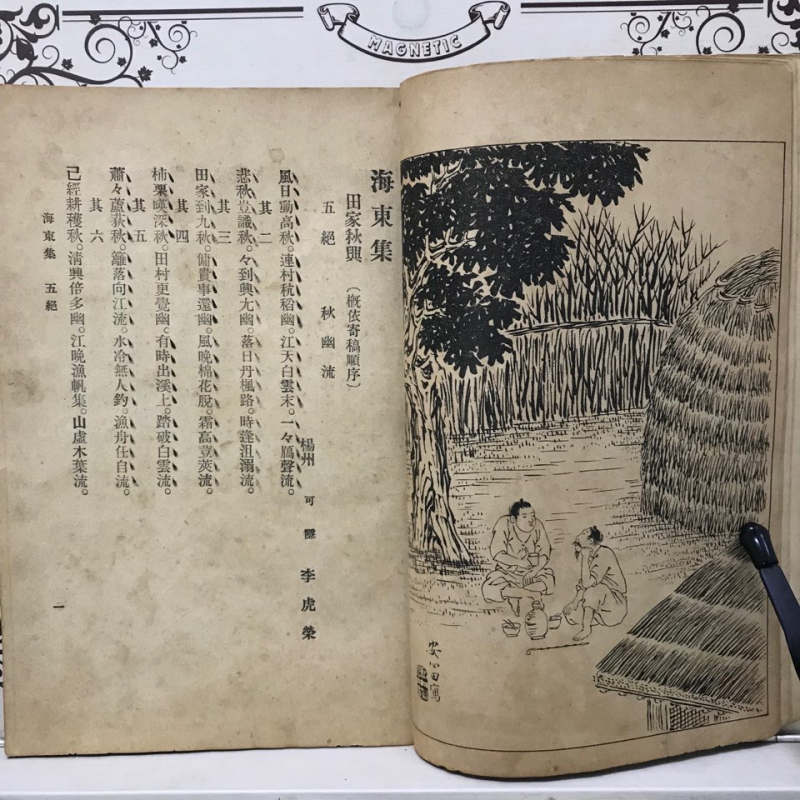 MAGNETIC
海東集
田家秋興 (槪依寄稿順序)
五絕 秋幽流
楊州 可 李虎榮
風日動高秋。連村秔稻幽。江天白雲末。一々鴈聲流。
其二
悲秋豈識秋。々到興尤幽。落日丹楓路。時逢沮溺流。
其三
田家到九秋。傭貴事還幽。風晚棉花脫。霜高荳莢流。
其四
柿栗嘆深秋。田村更覺幽。有時出溪上。踏破白雲流。
其五
蕭々蘆荻秋。籬落向江流。水冷無人釣。漁舟任自流。
其六
已經耕穫秋。淸興倍多幽。江晚漁帆集。山虛木葉流。
海東集 五絕
一
田寫